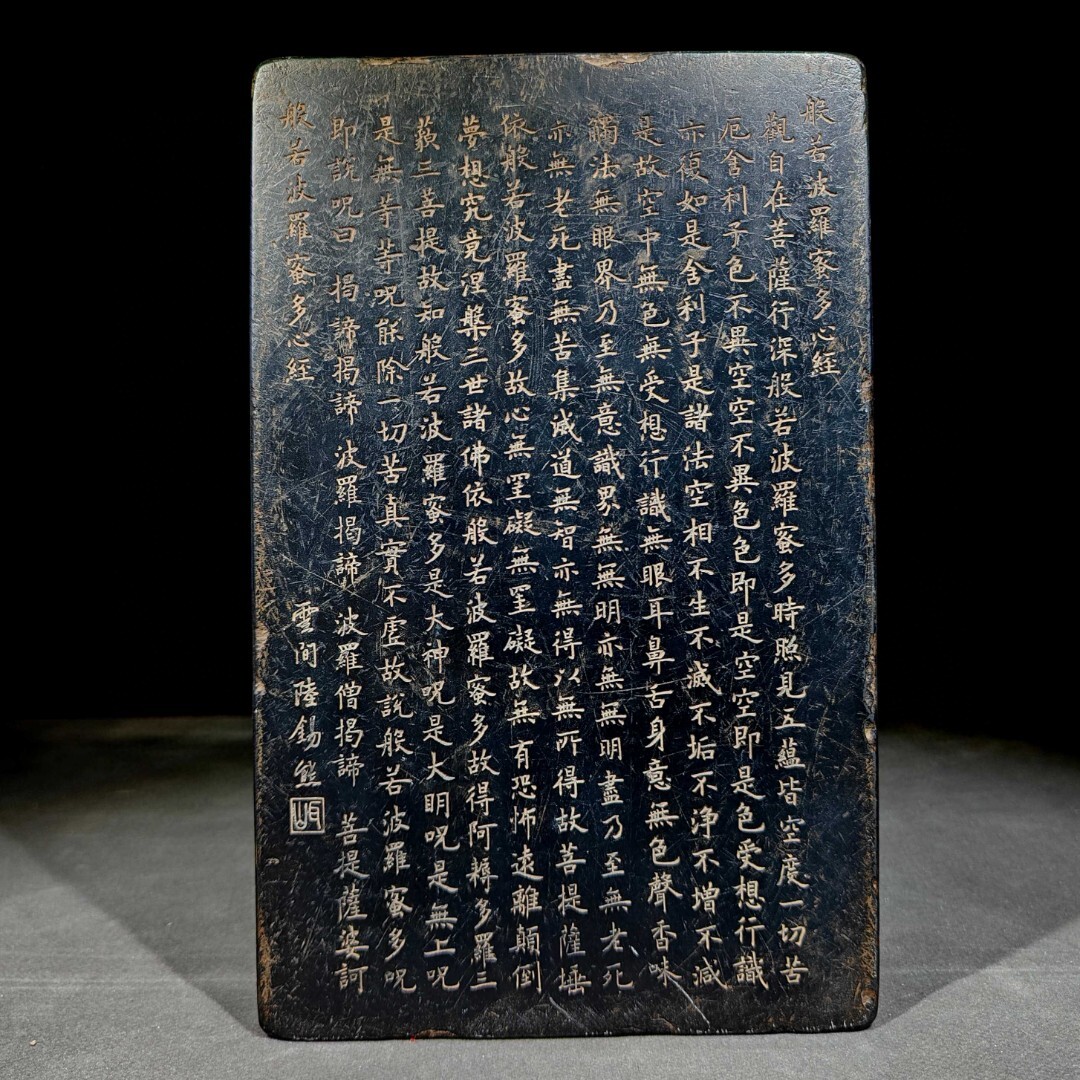 般若波羅蜜多心經
觀自在菩薩行深般若波羅蜜多時照見五蘊皆空度一切苦
厄舍利子色不異空空不異色色即是空空即是色受想行識
亦復如是舍利子是諸法空相不生不滅不垢不净不增不減
是故空中無色無受想行識無眼耳鼻舌身意無色聲香味
觸法無眼界乃至無意識界無無明亦無無明盡乃至無老死
亦無老死盡無苦集滅道無智亦無得以無所得故菩提薩埵
依般若波羅蜜多故心無罣礙無罣礙故無有恐怖遠離顛倒
夢想究竟涅槃三世諸佛依般若波羅蜜多故得阿耨多羅三
藐三菩提故知般若波羅蜜多是大神呪是大明呪是無上呪
是無等等呪能除一切苦真實不虛故說般若波羅蜜多呪
即說呪曰 揭諦揭諦 波羅揭諦 波羅僧揭諦 菩提薩婆訶
般若波羅蜜多心經 雲間陸錫熊